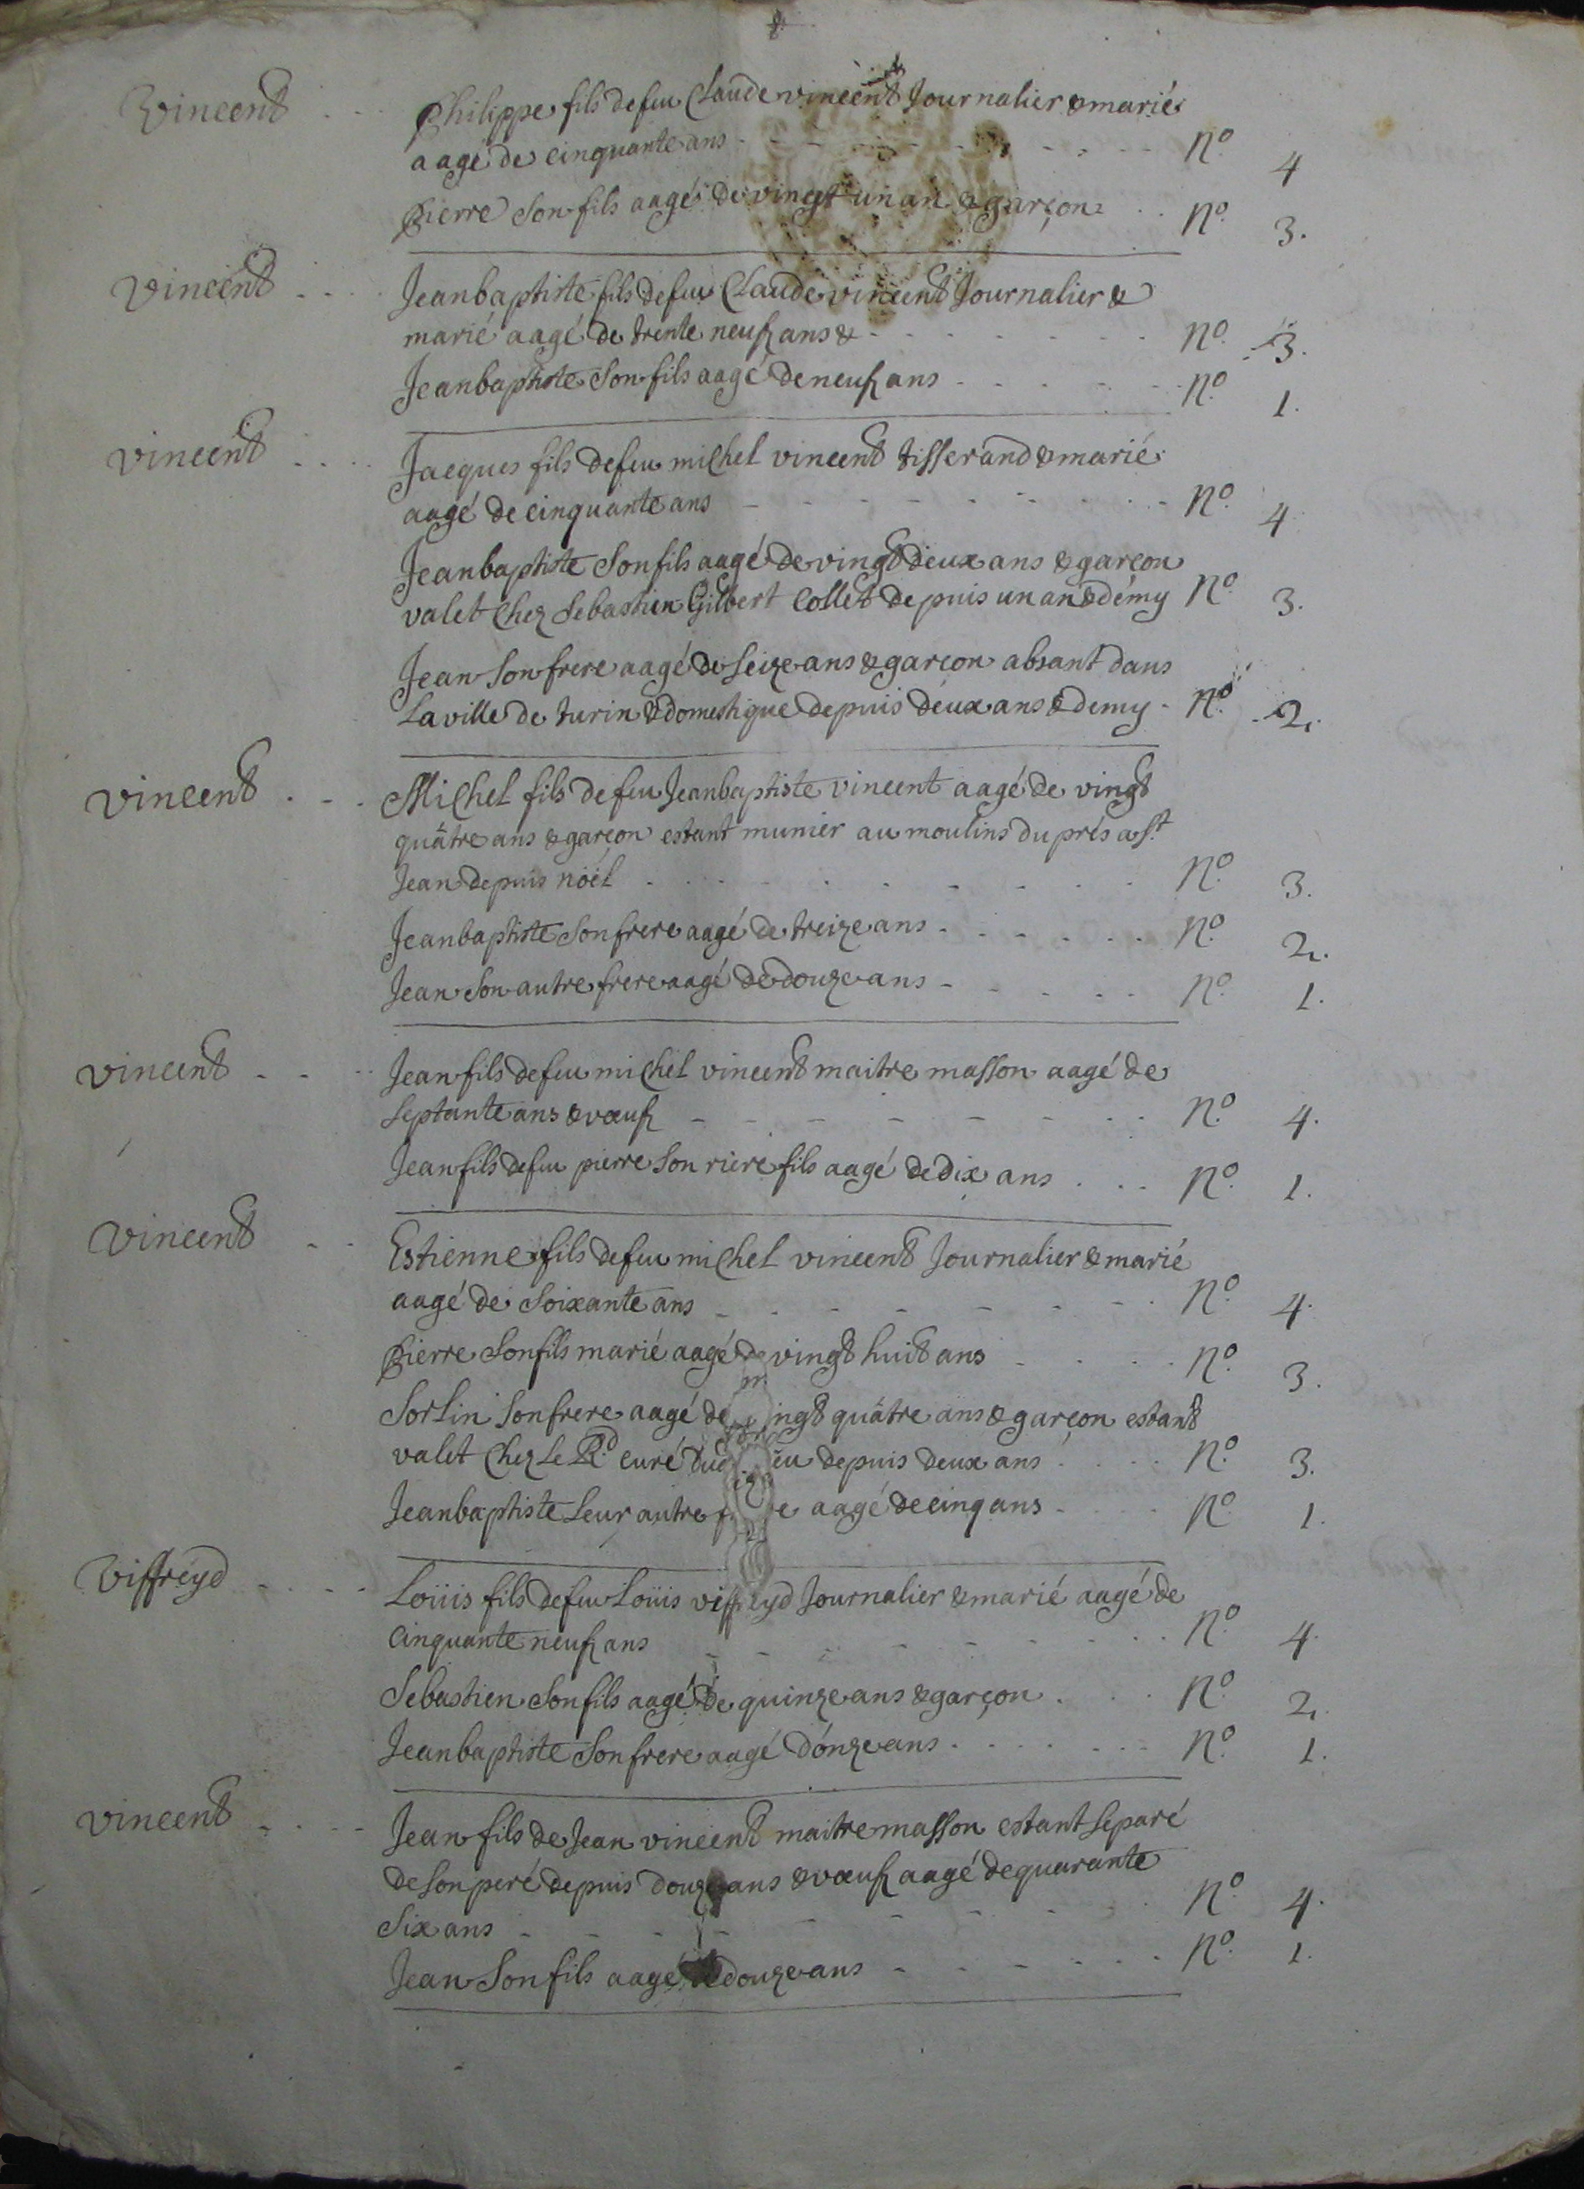 Vincent Philippe fils de feu Claude vincent Journalier & marié
aagé de cinquante ans No. 4
Pierre Son fils aagé de vingt un an & garçon No. 3.
Vincent Jeanbaptiste fils de feu Claude vincent Journalier &
marié aagé de trente neuf ans & No. 3.
Jeanbaptiste Son fils aagé de neuf ans No. 1.
vincent Jacques fils de feu michel vincent tisserand & marié
aagé de cinquante ans No. 4
Jeanbaptiste Son fils aagé de vingt deux ans & garçon
valet Chez Sebastien Gilbert Collet depuis un an & démy No. 3.
Jean Son frere aagé de Seize ans & garçon absant dans
La ville de turin & domestique depuis deux ans & demy No. 2.
vincent Michel fils de feu Jeanbaptiste vincent aagé de vingt
quâtre ans & garçon estant munier au moulins du prés a St.
Jean depuis nöel No. 3.
Jeanbaptiste Son frere aagé de treize ans No. 2.
Jean Son autre frere aagé de douze ans No. 1.
vincent Jean fils de feu michel vincent maitre masson aagé de
Septante ans & vœuf No. 4.
Jean fils de feu pierre Son riere fils aagé de dix ans No. 1.
Vincent Estienne fils de feu michel vincent Journalier & marié
aagé de Soixante ans No. 4.
Pierre Son fils marié aagé de vingt huit ans No. 3.
Sorlin Son frere aagé de ingt quâtre ans & garçon estant
valet Chez Le Rd. curé du eu depuis deux ans No. 3.
Jeanbaptiste Leur autre f e aagé de cinq ans No. 1.
Viffreyd Loüis fils de feu Loüis viffreyd Journalier & marié aagé de
Cinquante neuf ans No. 4.
Sebastien Son fils aagé de quinze ans & garçon No. 2.
Jeanbaptiste Son frere aagé d'onze ans No. 1.
vincent Jean fils de Jean vincent maitre masson estant Separé
de Son peré depuis douze ans & vœuf aagé de quarante
Six ans No. 4.
Jean Son fils aagé de douze ans No. 1.